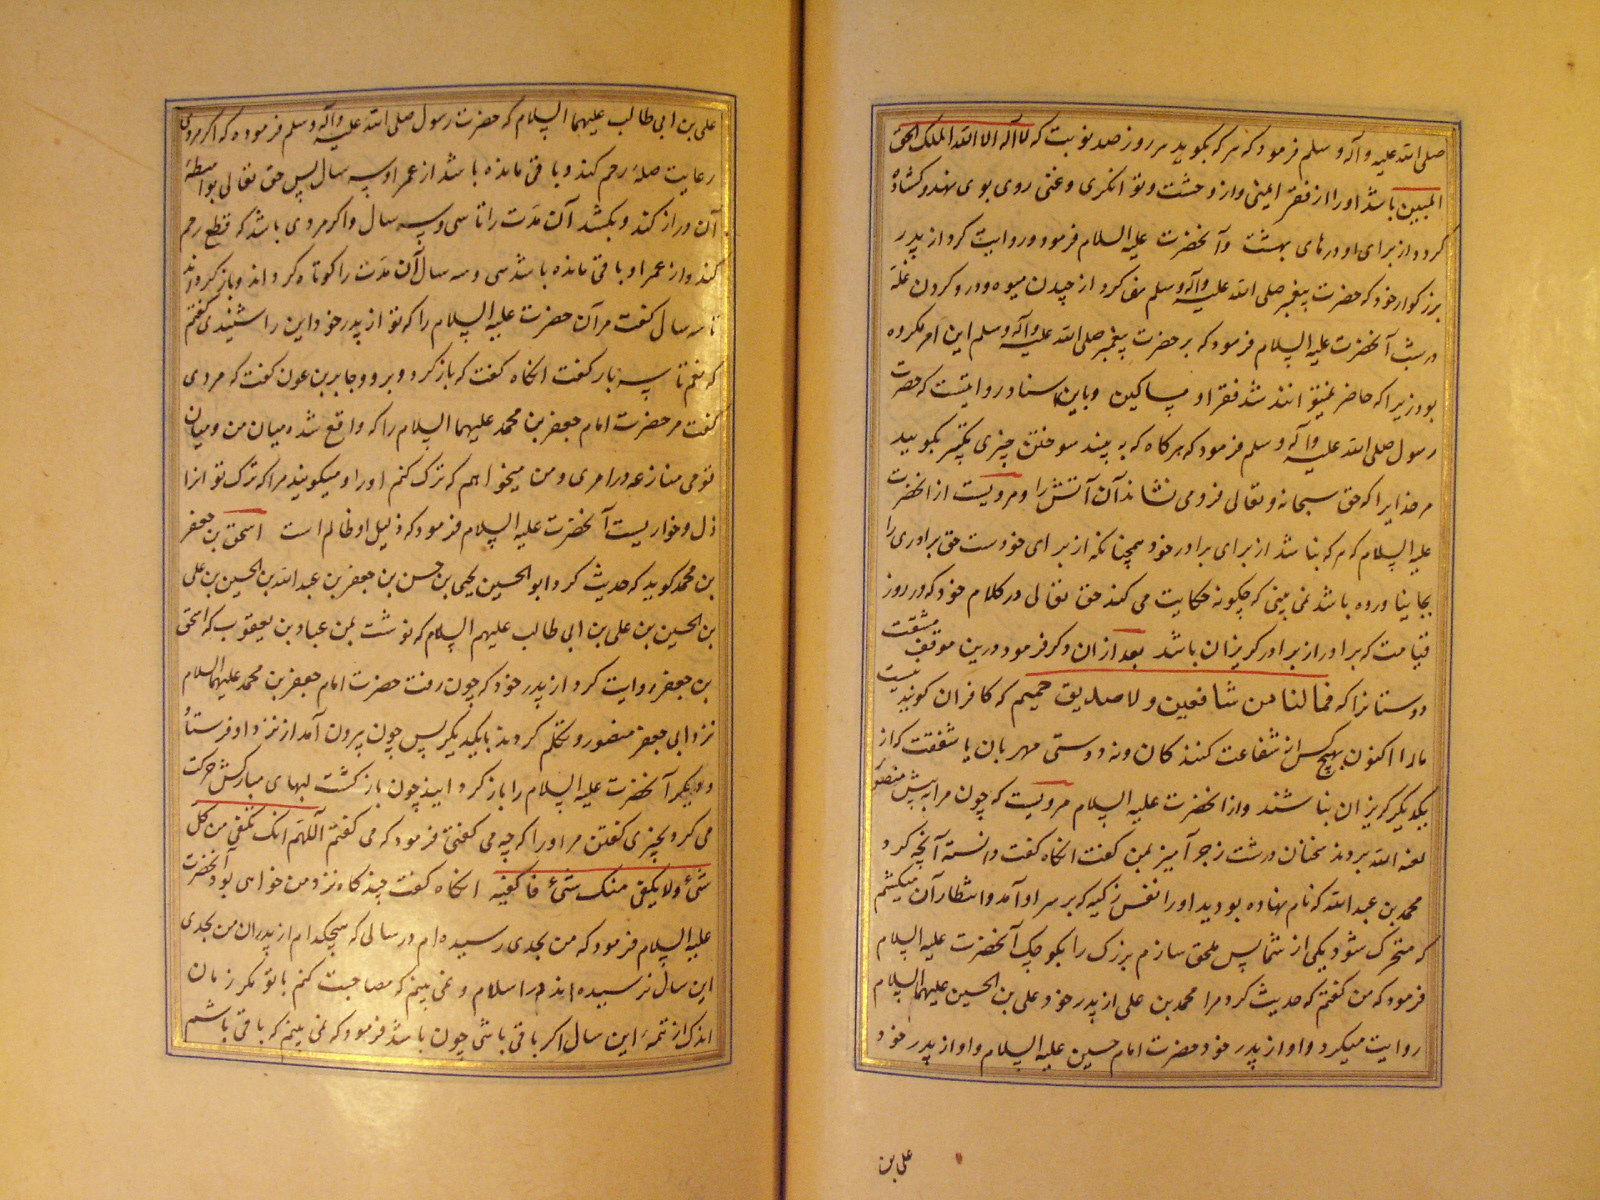 صلی الله علیه وآله وسلم فرمود که هر که بگوید هر روز صد نوبت که لا اله الا الله الملک الحق
المبین باشد او را از فقر ایمنی و از وحشت و توانگری و غنی روی بوی نهد و کشاده
گردد از برای او درهای بهشت و آنحضرت علیه السلام فرمود و روایت کرد از پدر
بزرگوار خود که حضرت پیغمبر صلی الله علیه وآله وسلم منع کرد از چیدن میوه و درو کردن غله
در شب آنحضرت علیه السلام فرمود که بر حضرت پیغمبر صلی الله علیه وآله وسلم این امر مکروه
بود زیرا که حاضر نمیتوانند شد فقرا و مساکین و باین اسناد روایتست که حضرت
رسول صلی الله علیه وآله وسلم فرمود که هرگاه که به بیند سوختن چیزی تکبیر بگویید
مر خدایرا که حق سبحانه و تعالی فرو می نشاند آن آتش را و مرویست از آنحضرت
علیه السلام کرم که نباشد از برای برادر خود همچنانکه از برای خودست حق برادری را
بجا نیاورده باشد نمی بینی که چگونه حکایت می کند حق تعالی در کلام خود که در روز
قیامت که برادر از برادر گریزان باشد بعد از آن ذکر فرمود درین موقف مشقت
دوستانرا که فما لنا من شافعین ولا صدیق حمیم که کافران گویند نیست
مارا اکنون هیچکس از شفاعت کنندگان و نه دوستی مهربان با شفقت که از
یکدیگر گریزان نباشند و از آنحضرت علیه السلام مرویست که چون مرا پیش منصور
لعنه الله بردند سخنان درشت زجر آمیز بمن گفت آنگاه گفت دانسته آنچه کرد
محمد بن عبد الله که نام نهاده بودید او را نفس زکیه که بر سر او آمد و انتظار آن میکشم
که متحرک شود یکی از شما پس ملحق سازم بزرگ را بکوچک آنحضرت علیه السلام
فرمود که من گفتم که حدیث کرد مرا محمد بن علی از پدر خود علی بن الحسین علیهما السلام
روایت میکرد و او از پدر خود حضرت امام حسین علیه السلام و او از پدر خود
علی بن
علی بن ابی طالب علیهما السلام که حضرت رسول صلی الله علیه وآله وسلم فرموده که اگر مردی
رعایت صلهٔ رحم کند و باقی مانده باشد از عمر او سه سال پس حق تعالی بواسطهٔ
آن دراز کند و بکشد آن مدت را تا سی و سه سال و اگر مردی باشد که قطع رحم
کند و از عمر او باقی مانده باشد سی و سه سال آن مدت را کوتاه گرداند و باز گرداند
تا سه سال گفت مر آن حضرت علیه السلام را که تو از پدر خود این را شنیدی گفتم
که نعم تا سه بار گفت آنگاه گفت که باز گرد و برو و جابر بن عون گفت که مردی
گفت مر حضرت امام جعفر بن محمد علیهما السلام را که واقع شده میان من و میان
قومی منازعه در امری و من میخواهم که ترک کنم او را و میگویند مرا که ترک تو آنرا
ذل و خواریست آنحضرت علیه السلام فرمود که ذلیل او ظالم است اسحق بن جعفر
بن محمد گوید که حدیث کرد ابو الحسین یحیی بن حسن بن جعفر بن عبد الله بن الحسین بن علی
بن الحسین بن علی بن ابی طالب علیهم السلام که نوشت بمن عباد بن یعقوب که اسحق
بن جعفر روایت کرد از پدر خود که چون رفت حضرت امام جعفر بن محمد علیهما السلام
نزد ابی جعفر منصور و تکلم کردند با یکدیگر پس چون بیرون آمد از نزد او فرستاد
و دیگر آنحضرت علیه السلام را باز گردانید چون بازگشت لبهای مبارکش حرکت
می کرد بچیزی گفتن مر او را که چه می گفتی فرمود که می گفتم اللهم انک تکفی من کل
شئ ولا یکفی منک شئ فاکفنیه آنگاه گفت چندگاه نزد من خواهی بود آنحضرت
علیه السلام فرمود که من بحدی رسیده ام در سالی که هیچکدام از پدران من بحدی
این سال نرسیده اند در اسلام و نمی بینم که مصاحبت کنم با تو مگر زمان
اندک از تتمهٔ این سال اگر باقی باشی چون باشد فرمود که نمی بینم که باقی باشم